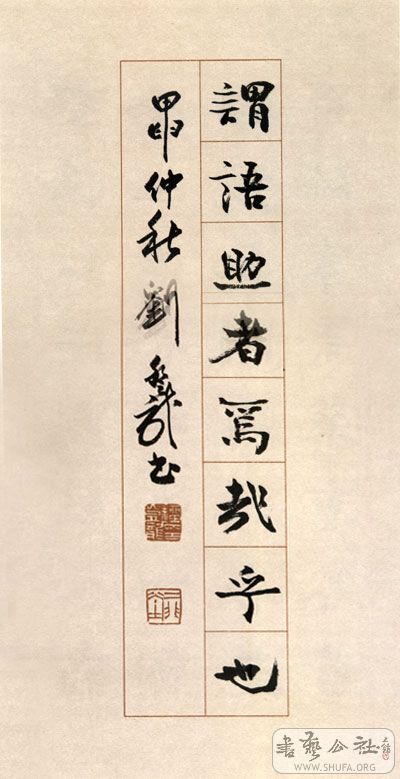 謂語助者焉哉乎也
甲申仲秋劉書
書藝公社
WWW.SHUFA.ORG